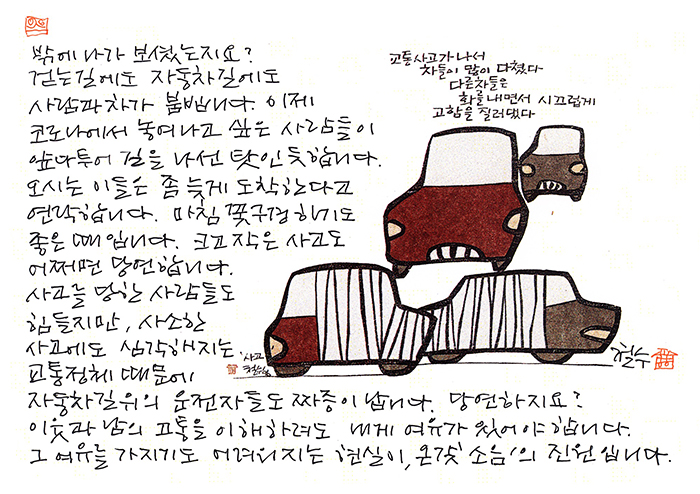 밖에 나가 보셨는지요?
걷는길에도 자동차길에도
사람과 차가 붐빕니다. 이제
코로나에서 놓여나고 싶은 사람들이
앞다투어 길을 나선 탓인 듯합니다.
오시는 이들은 좀 늦게 도착한다고
연락합니다. 마침 꽃구경하기도
좋은 때입니다. 크고 작은 사고도
어쩌면 당연합니다.
사고를 당한 사람들도
힘들지만, 사소한
사고에도 심각해지는
교통정체 때문에
자동차길위의 운전자들도 짜증이 납니다. 당연하지요?
이웃과 남의 고통을 이해하려도 내게 여유가 있어야 합니다.
그 여유를 가지기도 어려워지는 현실이, 온갖 '소음'의 진원입니다.
교통사고가 나서
차들이 많이 다쳤다
다른차들은
화를 내면서 시끄럽게
고함을 질러댔다
'사고'
철수
철수